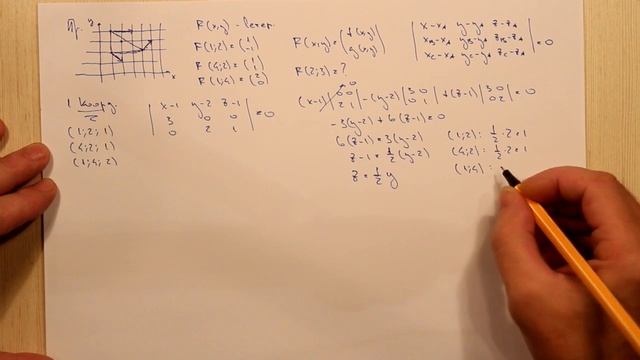 Пр.
y
x
F(x,y) - вектор
F(1;2) = (1 -1)
F(4;2) = (1 1)
F(1;4) = (2 0)
F(x,y) = (f(x,y) g(x,y))
F(2;3) = ?
| x-x_A y-y_A z-z_A |
| x_B-x_A y_B-y_A z_B-z_A | = 0
| x_C-x_A y_C-y_A z_C-z_A |
1 коорд.
(1;2;1)
(4;2;1)
(1;4;2)
| x-1 y-2 z-1 |
| 3 0 0 | = 0
| 0 2 1 |
(x-1) | 0 0 2 1 | - (y-2) | 3 0 0 1 | + (z-1) | 3 0 0 2 | = 0
-3(y-2) + 6(z-1) = 0
6(z-1) = 3(y-2)
z-1 = 1/2 (y-2)
z = 1/2 y
(1;2): 1/2 · 2 = 1
(4;2): 1/2 · 2 = 1
(1;4) :